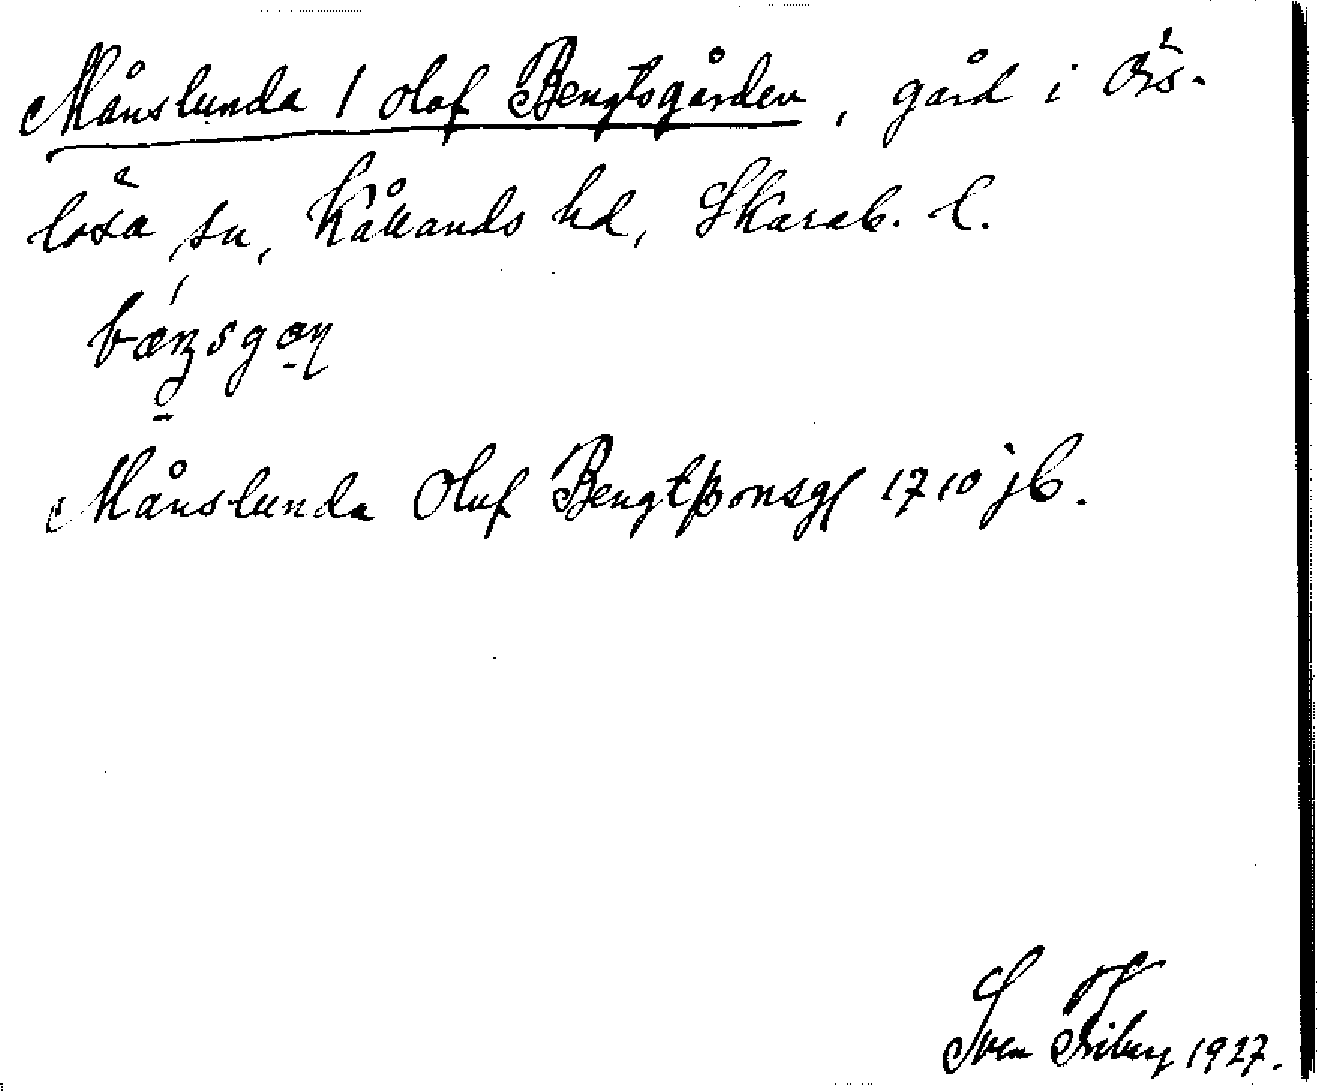 Månslunda 1 Olof Bengtsgården, gård i Örs-
lösa sn, Kållands hd, Skarab. l.
Månslunda Oluf Bengtßonsg 1710 jb.
Sven Friberg 1927.